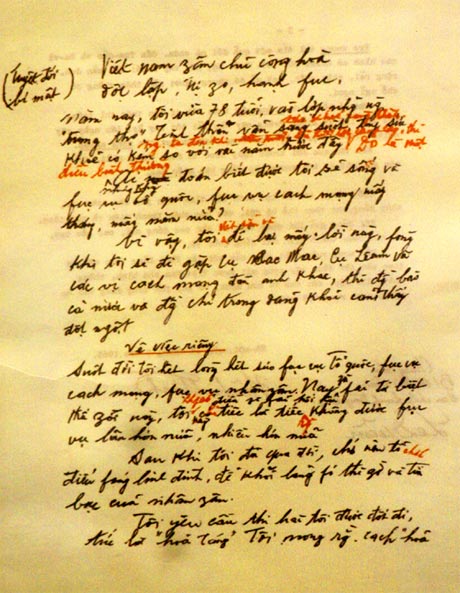 (Tuyệt đối
bí mật)
Việt nam zân chủ cộng hoà
độc lập, tự zo, hạnh fúc.
Năm nay, tôi vừa 78 tuổi, vào lớp những ng
"trung thọ" Tinh thần vẫn sáng suốt, tuy sức
khoẻ có kém so với vài năm trước đây. Đó là một
điều bình thường
Ai mà đoán biết được tôi sẽ sống và
fục vụ tổ quốc, fục vụ cách mạng mấy
tháng, mấy năm nữa?
Vì vậy, tôi viết sẵn để lại mấy lời này, fòng
khi tôi sẽ đi gặp Cụ Các Mác, Cụ Lenin và
các vị cách mạng đàn anh khác, thì đg bào
cả nước và đg chí trong đảng khỏi cảm thấy
đột ngột
Về việc riêng
Suốt đời tôi hết lòng hết sức fục vụ Tổ quốc, fục vụ
cách mạng, fục vụ nhân zân. Nay dù fải từ biệt
thế zới này, tôi tiếc là tiếc không được fục
vụ lâu hơn nữa, nhiều hơn nữa
Sau khi tôi đã qua đời, chớ nên tổ chức
điếu fúng linh đình, để khỏi lãng fí thì giờ và tiền
bạc của nhân zân.
Tôi yêu cầu thi hài tôi được đốt đi,
tức là "hoả táng" Tôi mong rg. cách "hoả